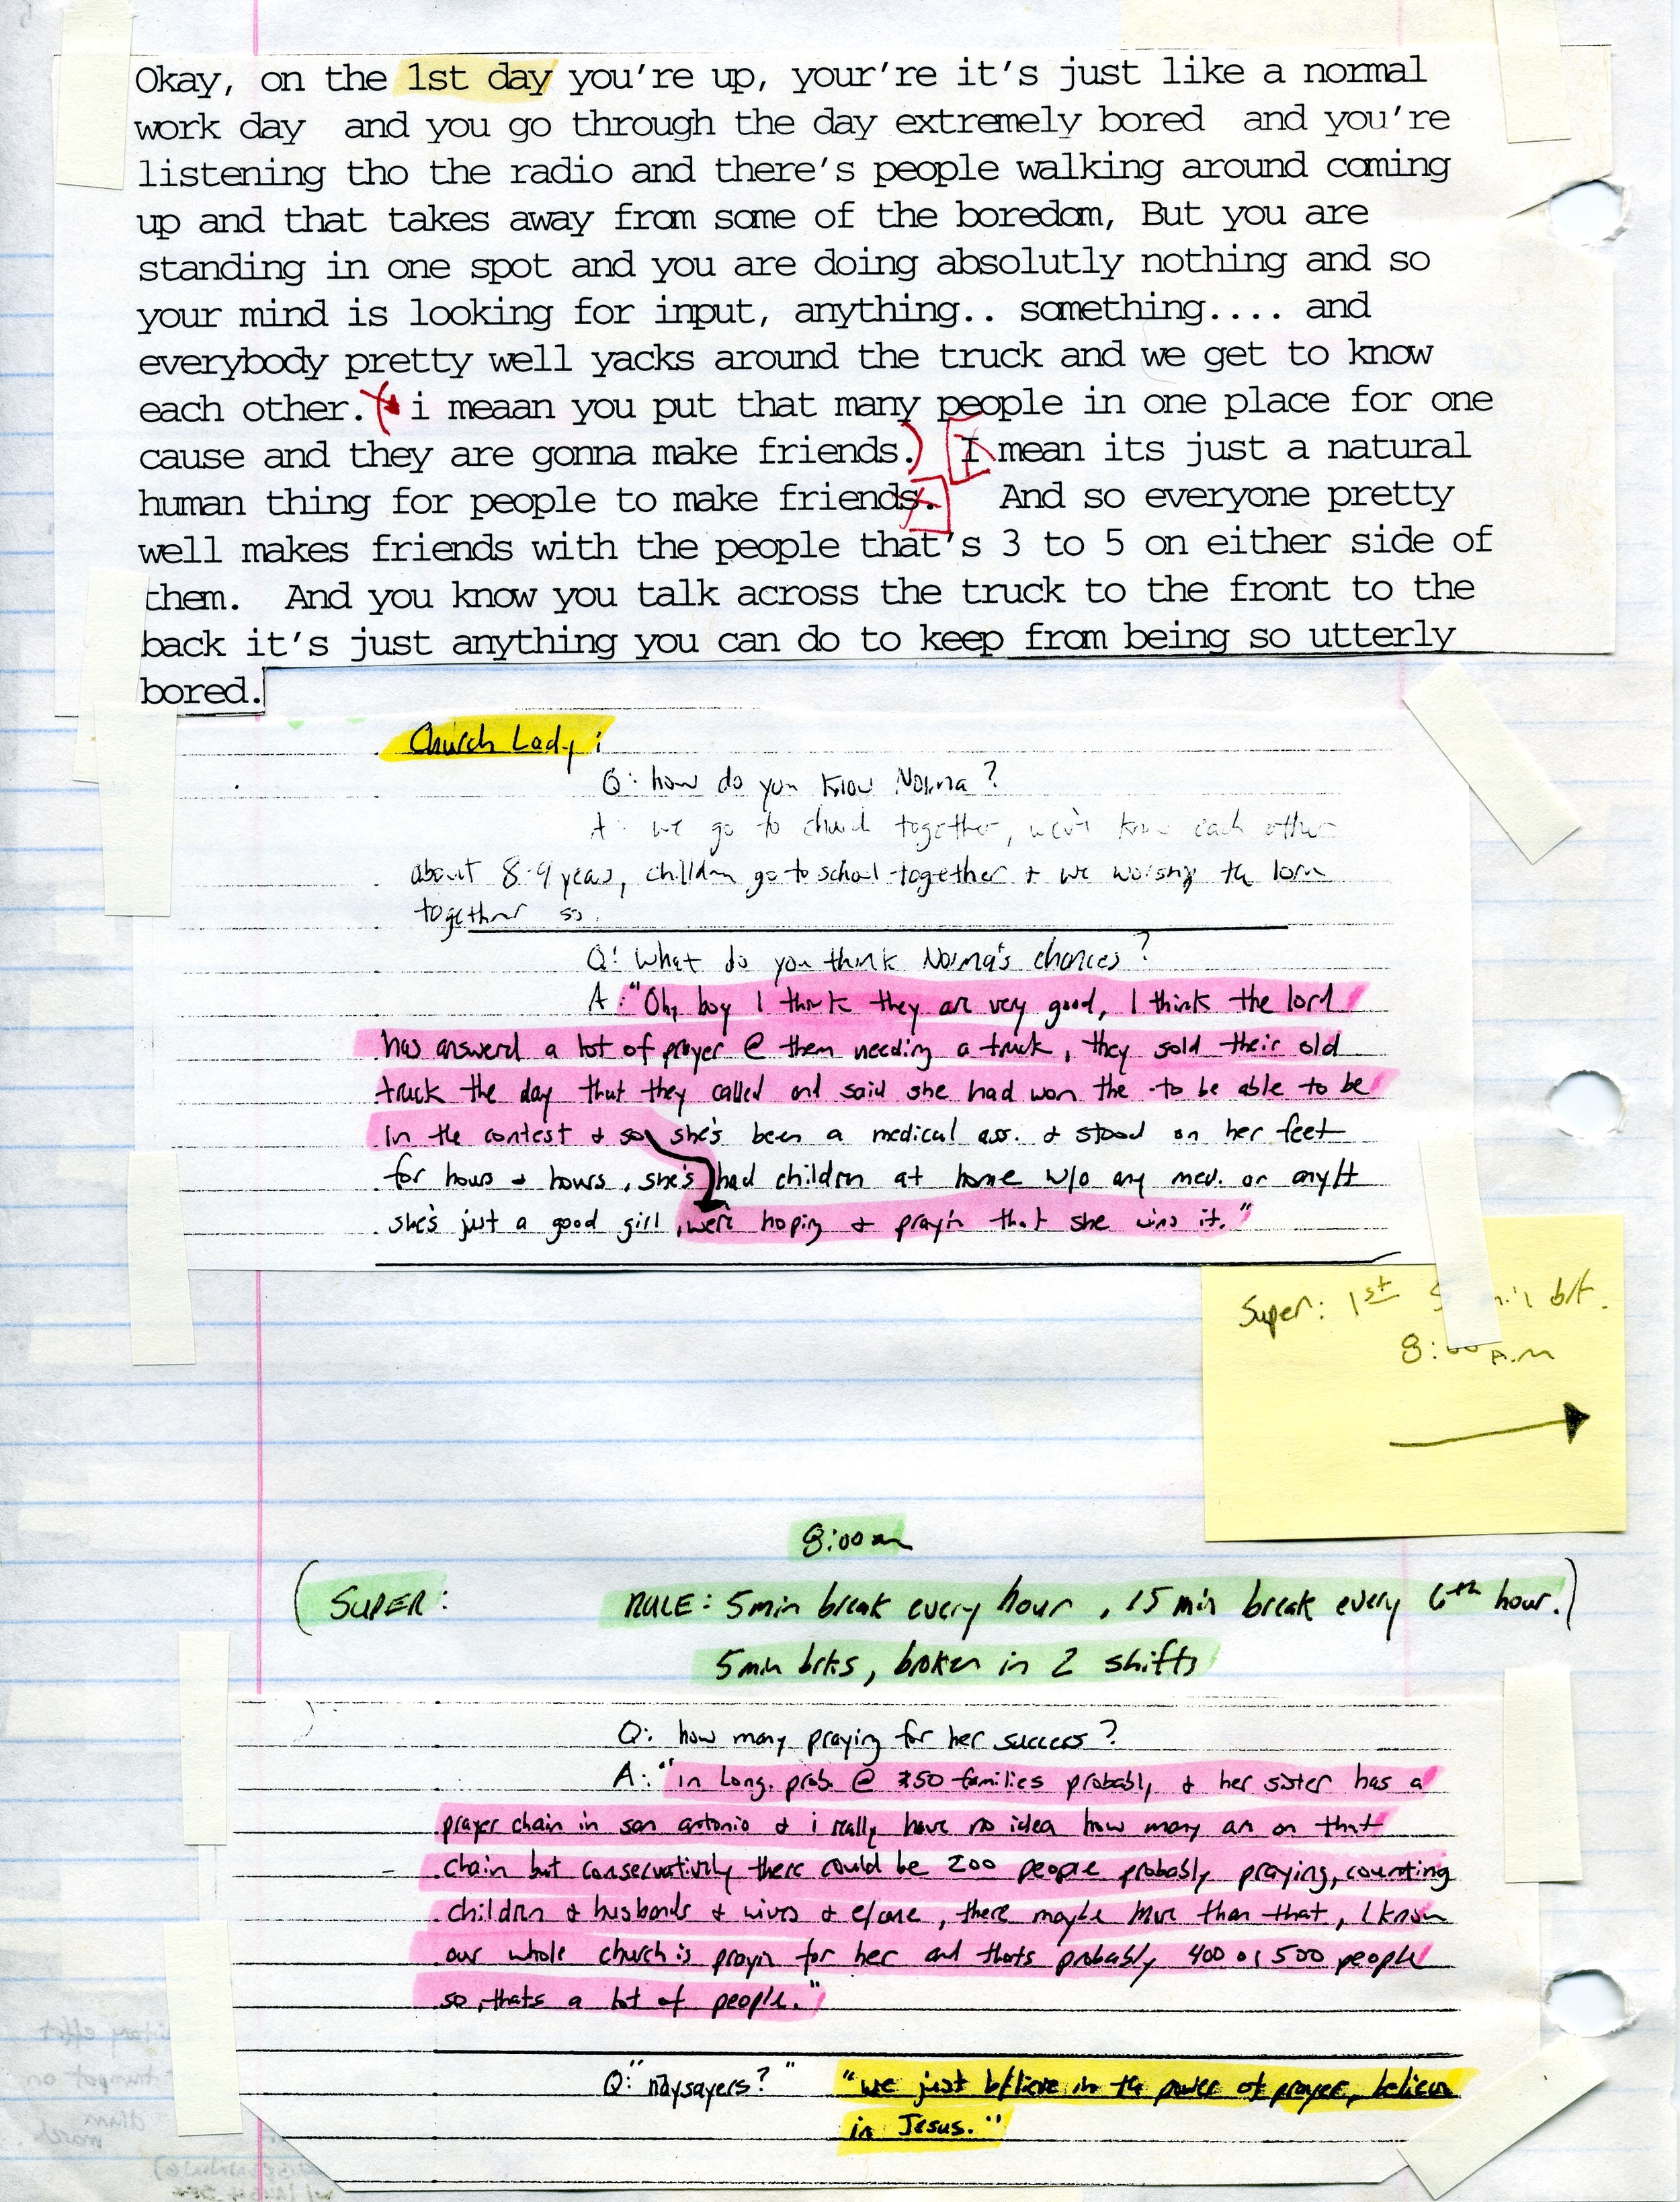 Okay, on the 1st day you're up, your're it's just like a normal
work day and you go through the day extremely bored and you're
listening tho the radio and there's people walking around coming
up and that takes away from some of the boredom, But you are
standing in one spot and you are doing absolutly nothing and so
your mind is looking for input, anything.. something.... and
everybody pretty well yacks around the truck and we get to know
each other. ( i meaan you put that many people in one place for one
cause and they are gonna make friends.) [I mean its just a natural
human thing for people to make friends.] And so everyone pretty
well makes friends with the people that's 3 to 5 on either side of
them. And you know you talk across the truck to the front to the
back it's just anything you can do to keep from being so utterly
bored.
Church Lady:
Q: how do you know Norma?
A: we go to church together, we've know each other
about 8-9 years, children go to school together + we worship the
together so.
Q: What do you think Norma's chances?
A: "Oh, boy I think they are very good, I think the lord
has answerd a lot of prayer @ them needing a truck, they sold their old
truck the day that they called and said she had won the -to be able to be
in the contest + so she's been a medical ass. + stood on her feet
for hours + hours, she's had children at home w/o any med. or
she's just a good girl, we're hoping + prayin that she wins it."
Super: 1st brk.
8:00 A.M
8:00am
(SUPER: RULE: 5min break every hour, 15 min break every 6th hour.)
5min brks, broken in 2 shifts
Q: how many praying for her success?
A: "in Long. prob. @ 50 families probably + her sister has a
prayer chain in san antonio + i really have no idea how many are on that
chain but conservatively there could be 200 people probably praying, counting
children + husbands + wives + e/one, there maybe more than that, I know
our whole church is prayin for her and thats probably 400 or 500 people
so, thats a lot of people."
Q: "naysayers?" "we just believe in the power of prayer, believe
in Jesus."